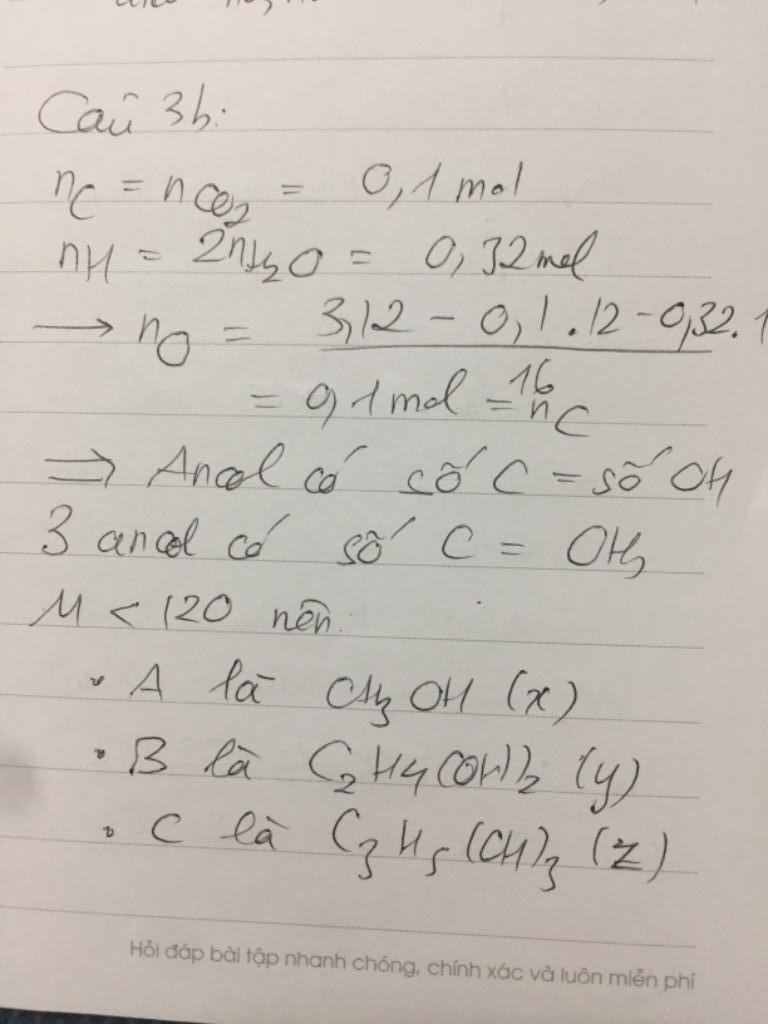 Câu 3b:
nC = nCO2 = 0,1 mol
nH = 2nH2O = 0,32 mol
→ nO = 3,12 - 0,1.12 - 0,32.1
16
= 0,1 mol = nC
⇒ Ancol có số C = số OH
3 ancol có số C = OH,
M < 120 nên:
• A là CH3OH (x)
• B là C2H4(OH)2 (y)
• C là C3H5(CH)3 (z)
Hỏi đáp bài tập nhanh chóng, chính xác và luôn miễn phí